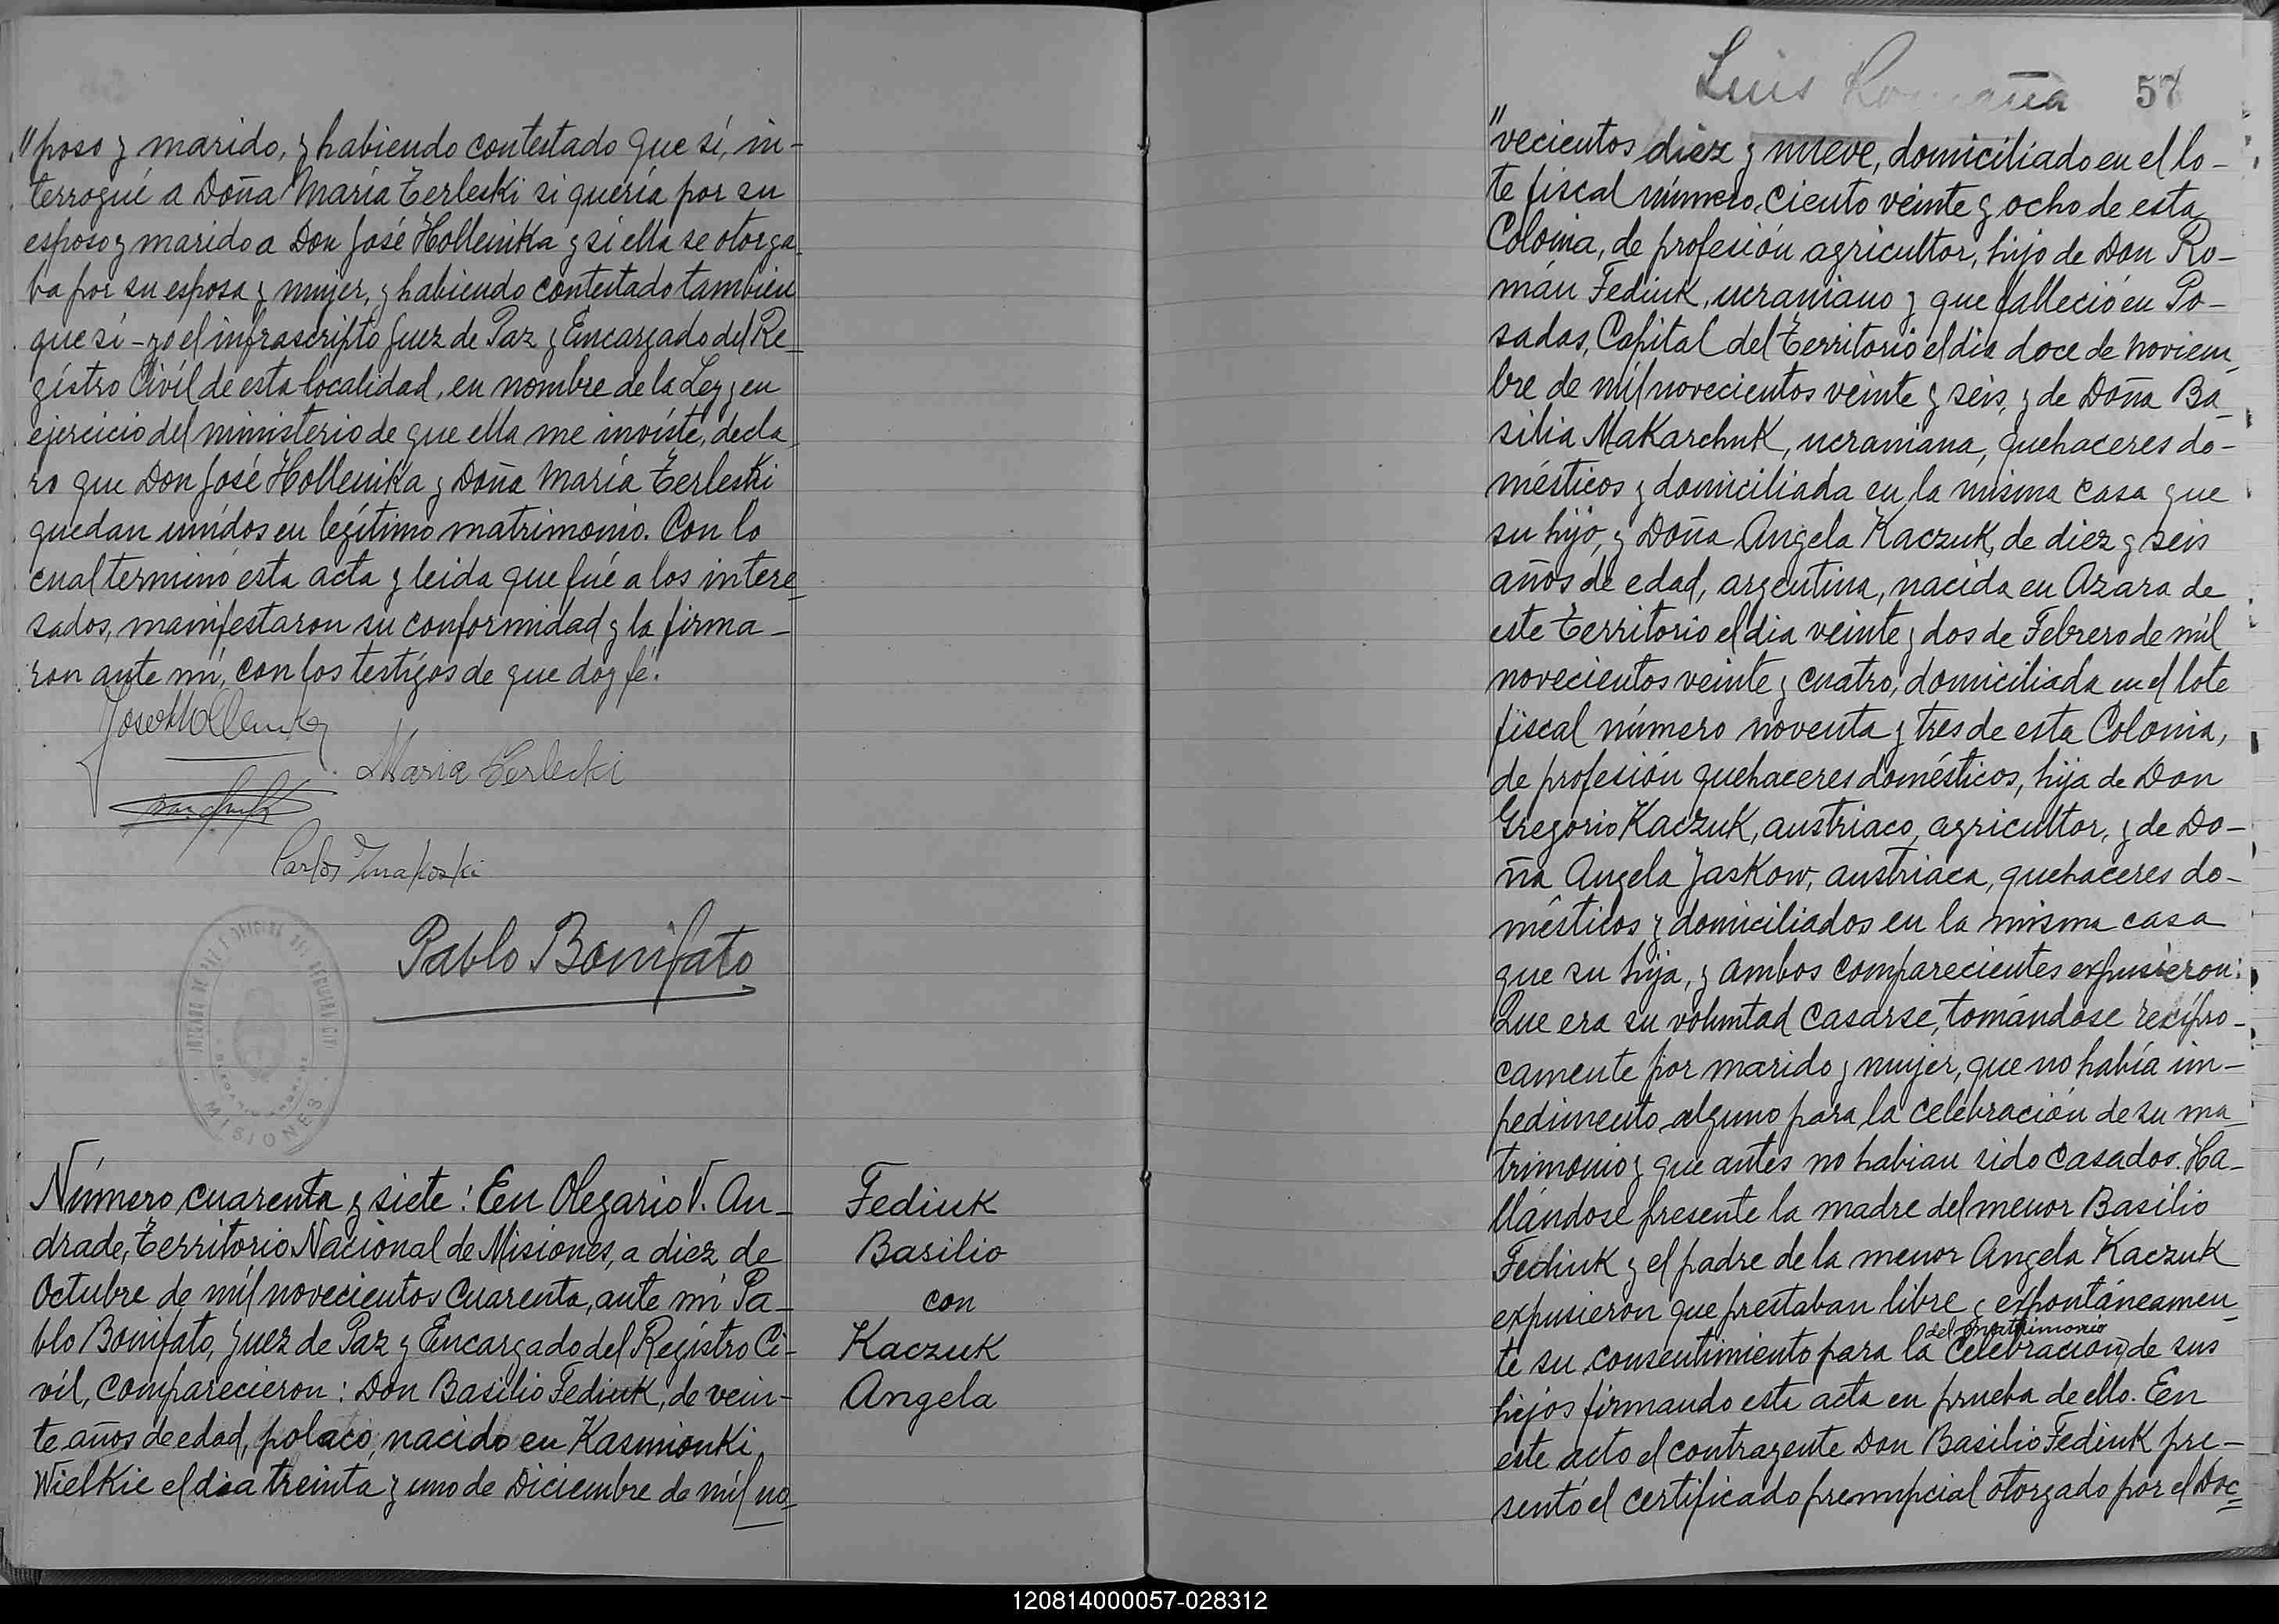 "poso y marido, y habiendo contestado que sí, in-
terrogué a Doña María Terleski si quería por su
esposo y marido a Don José Hollenika y si ella se otorga-
ba por su esposa y mujer, y habiendo contestado tambien
que sí - yo el infrascripto Juez de Paz y Encargado del Re-
gistro Civil de esta localidad, en nombre de la Ley y en
ejercicio del ministerio de que ella me inviste, decla-
ro que Don José Hollenika y Doña María Terleski
quedan unidos en legítimo matrimonio. Con lo
cual terminó esta acta y leida que fué a los intere-
sados, manifestaron su conformidad y la firma-
ron ante mí, con los testigos de que doy fé.
Maria Terlecki
Carlos
Pablo Bonifato
MISIONES
Número cuarenta y siete: En Olegario V. An-
drade, Territorio Nacional de Misiones, a diez de
Octubre de mil novecientos cuarenta, ante mí Pa-
blo Bonifato, Juez de Paz y Encargado del Registro Ci-
vil, comparecieron: Don Basilio Fediuk, de vein-
te años de edad, polaco, nacido en Kasmionki
Wielkie el dia treinta y uno de Diciembre de mil no-
Fediuk
Basilio
con
Kaczuk
Angela
Luis
57
"vecientos diez y nueve, domiciliado en el lo-
te fiscal número ciento veinte y ocho de esta
Colonia, de profesión agricultor, hijo de Don Ro-
mán Fediuk, ucraniano y que falleció en Po-
sadas, Capital del Territorio el dia doce de noviem-
bre de mil novecientos veinte y seis, y de Doña Ba-
silia Makarchuk, ucraniana, quehaceres do-
mésticos y domiciliada en la misma casa que
su hijo, y Doña Angela Kaczuk, de diez y seis
años de edad, argentina, nacida en Azara de
este Territorio el dia veinte y dos de Febrero de mil
novecientos veinte y cuatro, domiciliada en el lote
fiscal número noventa y tres de esta Colonia,
de profesión quehaceres domésticos, hija de Don
Gregorio Kaczuk, austriaco, agricultor, y de Do-
ña Angela Jaskow, austriaca, quehaceres do-
mésticos y domiciliados en la misma casa
que su hija, y ambos comparecientes expusieron:
Que era su voluntad casarse, tomándose recípro-
camente por marido y mujer, que no había im-
pedimento alguno para la celebración de su ma-
trimonio y que antes no habian sido casados. Ha-
llándose presente la madre del menor Basilio
Fediuk y el padre de la menor Angela Kaczuk
expusieron que prestaban libre y espontáneamen-
del matrimonio
te su consentimiento para la celebración de sus
hijos firmando esta acta en prueba de ello. En
este acto el contrayente Don Basilio Fediuk pre-
sentó el certificado prenupcial otorgado por el Doc-
120814000057-028312